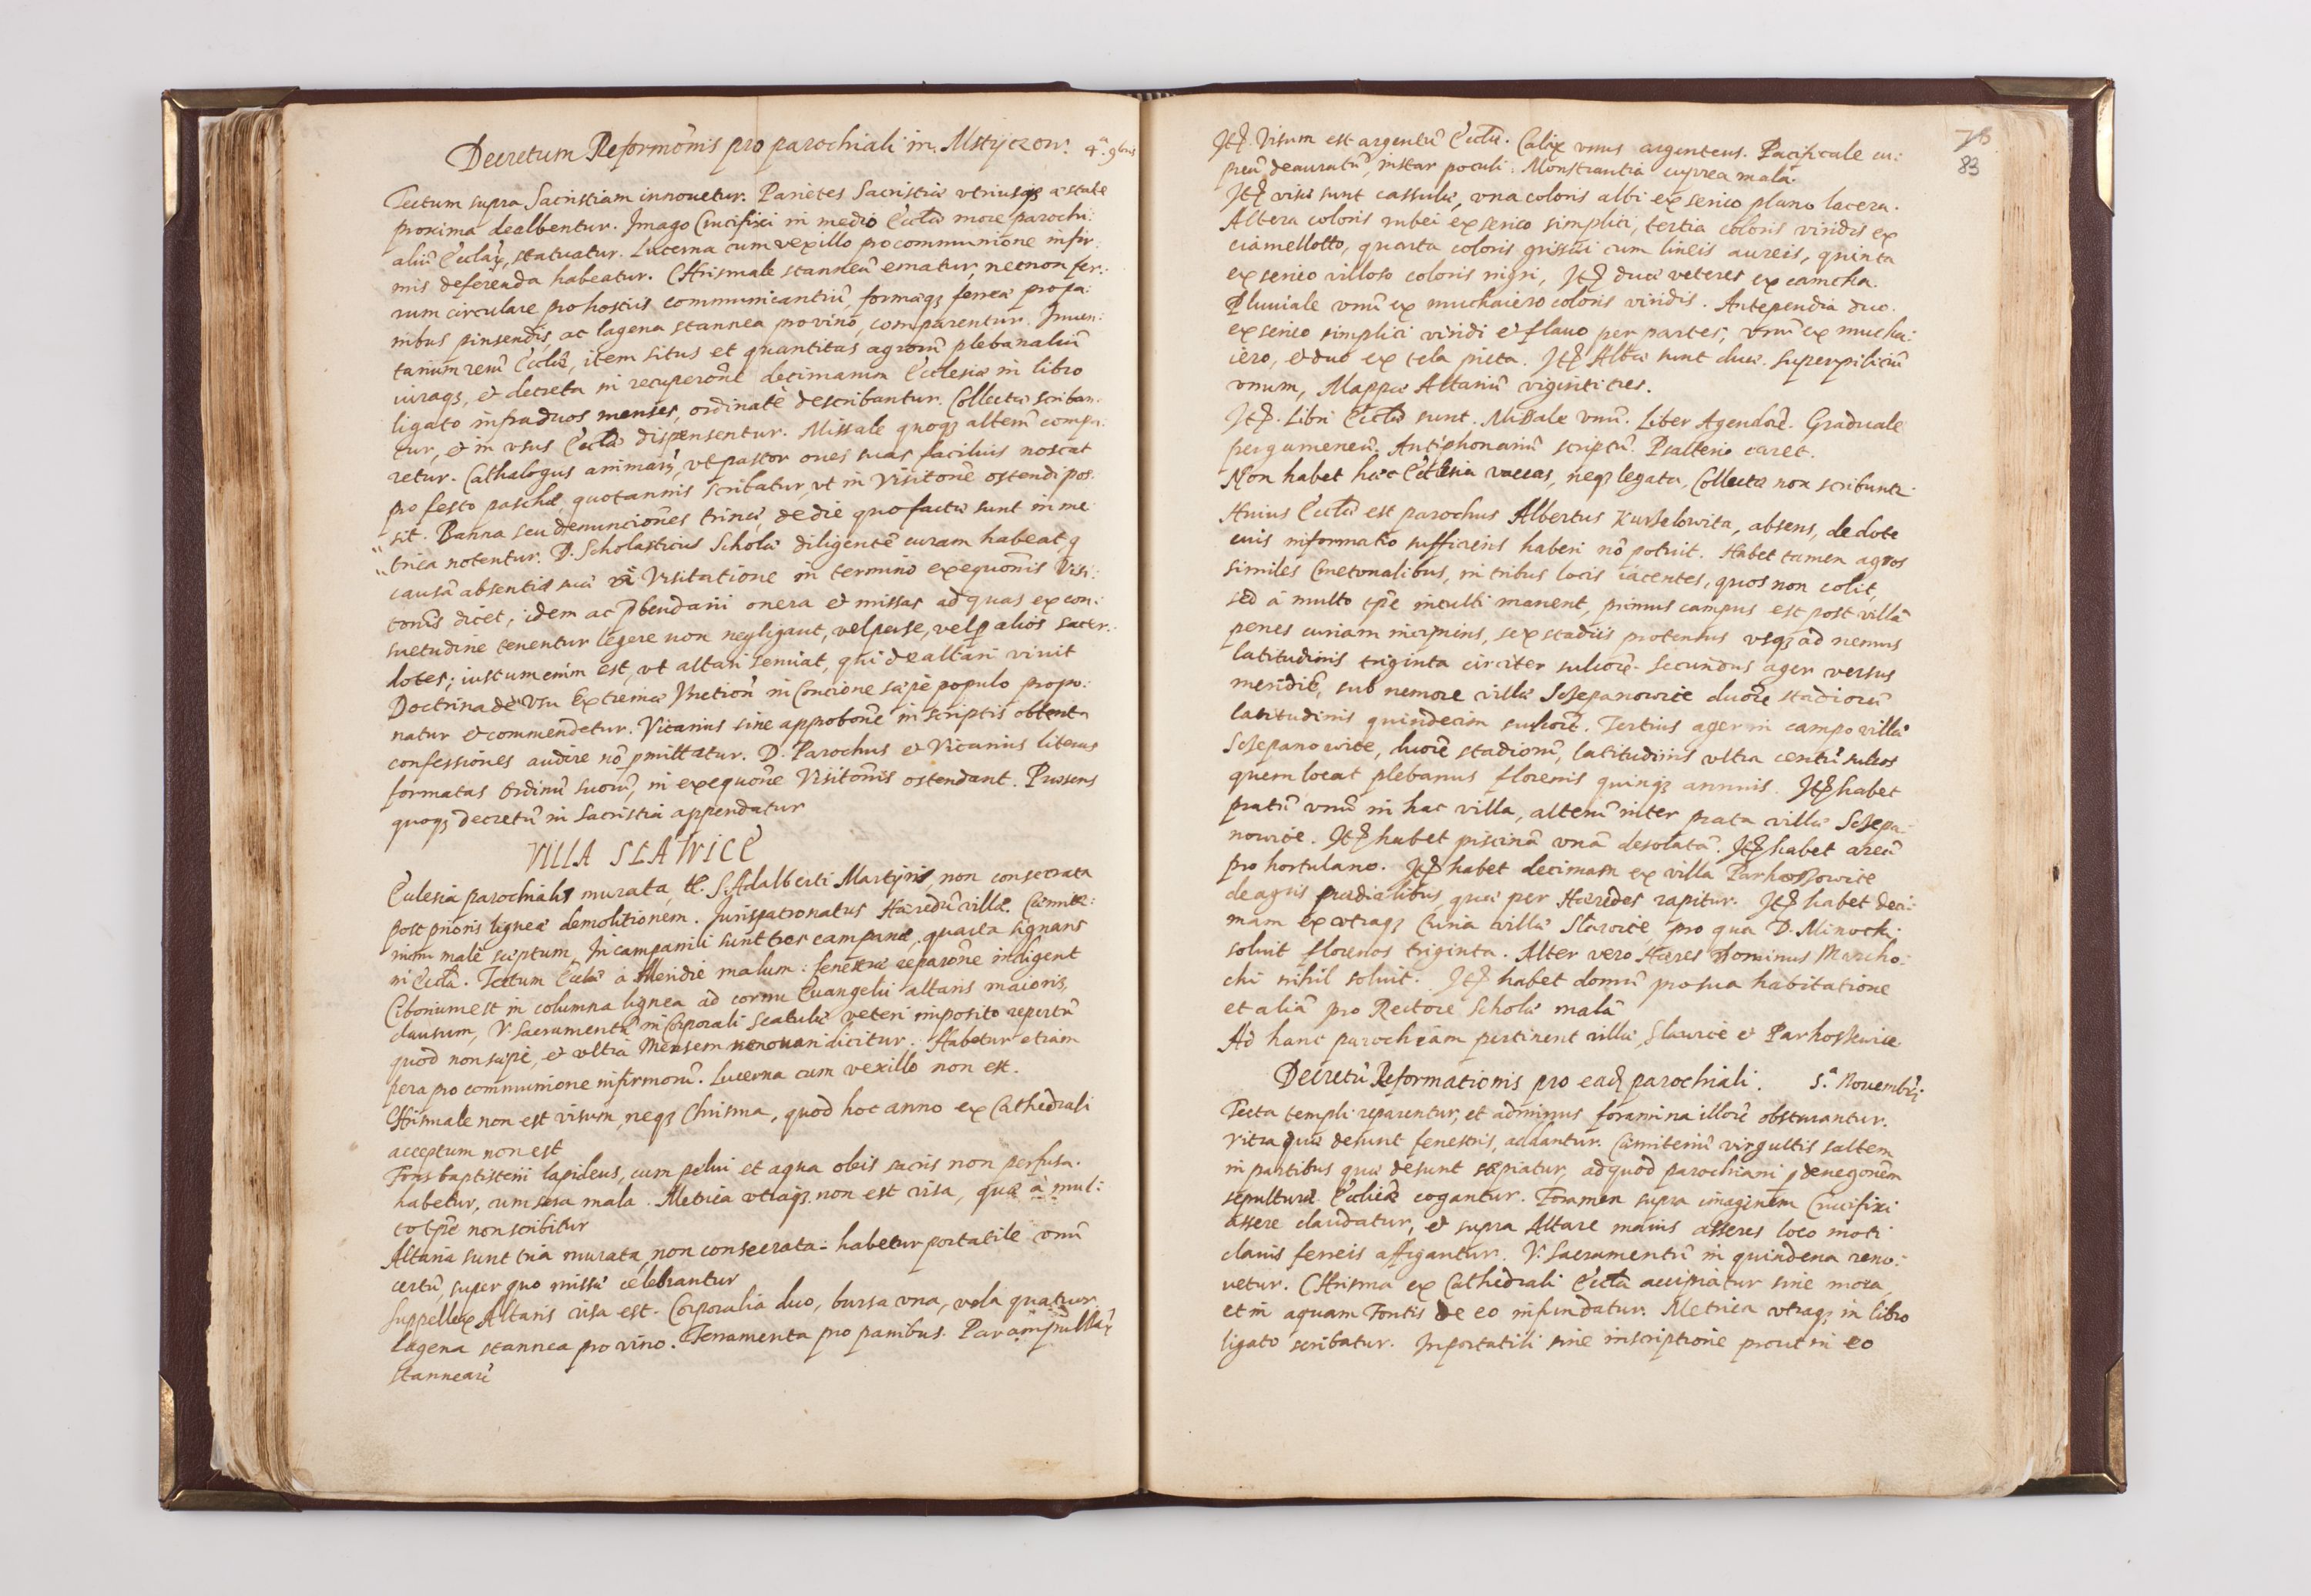 Decretum Reformõnis pro parochiali in Mstyczow. 4ª 9bris
Tectum supra Sacristiam innouetur. Parietes Sacristiæ vtriusq; æstate
proxima dealbentur. Imago Crucifixi in medio Eccłæ more parochi:
aliũ Eccłarũ, statuatur. Lucerna cum vexillo pro communione infir:
mis deferenda habeatur. Chrismale stanneũ ematur, necnon fer:
rum circulare pro hostiis communicantiũ, formaq; ferrea pro pa:
nibus pinsendis, ac lagena stannea pro vino, comparentur. Inuen:
tarium rerũ Eccłæ, item situs et quantitas agrorũ plebanaliũ
iuraq;, et decreta in recuperõne decimarum Ecclesiæ in libro
ligato infra duos menses, ordinatè describantur. Collectæ scriban:
tur, et in vsus Eccłæ dispensentur. Missale quoq; alterũ compa:
retur. Cathalogus animarũ, vt pastor oues suas facilius noscat
pro festo paschæ, quotannis scribatur, vt in Visitõne ostendi pos:
sit. Banna seu denunciões trinæ, de die quo factæ sunt in me
trica notentur. D. Scholasticus Scholæ diligentẽ curam habeat, q
causã absentiæ suæ à Visitatione in termino exequõnis Visi:
tonis dicet, idem ac p̃bendarii onera et missas ad quas ex con:
suetudine tenentur legere non negligant, vel per se, vel p alios sacer:
dotes; iustum enim est, vt altari seruiat, qui de altari viuit
Doctrina de vsu Extremæ Vnctionĩ in Concione sæpe populo propo:
natur et commendetur. Vicarius sine approbõne in scriptis obtenta
confessiones audire nõ pmittatur. D. Parochus et Vicarius literas
formatas Ordinũ suorũ, in exequõne Visitõnis ostendant. Præsens
quoq; decretũ in Sacristia appendatur
VILLA SLAWICE
Ecclesia parochialis murata, tt. S. Adalberti Martyris, non consecrata
post prioris ligneæ demolitionem. Iurispatronatus Hæredũ villæ. Cæmite:
rium male sæptum. In campanili sunt tres campanæ, quarta signans
in Eccłã. Tectum Eccłæ a Meridie malum: fenestræ reparõne indigent
Ciborium est in columna lignea ad cornu Euangelii altaris maioris,
clausum, V. Sacramentũ in Corporali Scatulæ veteri imposito repertũ
quod non sæpe, et vltra Mensem renouari dicitur. Habetur etiam
pera pro communione infirmorũ. Lucerna cum vexillo non est.
Chrismale non est visum, neq; Chrisma, quod hoc anno ex Cathedrali
acceptum non est
Fons baptisterii lapideus, cum pelui et aqua oleis sacris non perfusa.
habetur, cum sera mala. Metrica vtraq; non est visa, quæ à mul:
to tp̃e non scribitur
Altaria sunt tria murata, non consecrata: habetur portatile vnũ
certũ, super quo missæ celebrantur
Suppellex Altaris visa est. Corporalia duo, bursa vna, vela quatuor
Lagena stannea pro vino. Ferramenta pro panibus. Par ampullarũ
stannearũ
78
83
Itẽ Visum est argentũ Eccłæ. Calix vnus argenteus. Pacificale cu:
preũ deauratũ, instar poculi. Monstrantia cuprea mala.
Itẽ visæ sunt cassulæ, vna coloris albi ex serico plano lacera.
Altera coloris rubei ex serico simplici, tertia coloris viridis ex
ciamellotto, quarta coloris grissei cum lineis aureis, quinta
ex serico villoso coloris nigri, Itẽ duæ veteres ex camcha.
Pluuiale vnũ ex muchaiero coloris viridis. Antependia duo
ex serico simplici viridi et flauo per partes, vnũ ex mucha:
iero, et duo ex tela picta. Itẽ Albæ sunt duæ. Superpiliciũ
vnum, Mappæ Altariũ viginti tres.
Itẽ. Libri Eccłæ sunt. Missale vnũ. Liber Agendorũ. Graduale
pergameneũ. Antiphonariũ scriptũ. Psalterio caret.
Non habet hæc Ecclesia vaccas, neq; legata, Collectæ non scribuntr
Huius Eccłæ est parochus Albertus Kurzelowita, absens, de dote
eius informatio sufficiens haberi nõ potuit. Habet tamen agros
similes Cmetonalibus, in tribus locis iacentes, quos non colit,
sed à multo tp̃e inculti manent, primus campus est post villã
penes curiam incipiens, sex stadiis protensus vsq; ad nemus
latitudinis triginta circiter sulcorũ. Secundus ager versus
meridiẽ, sub nemore villæ Sczepanowice duorũ stadiorũ
latitudinis quindecim sulcorũ. Tertius ager in campo villæ
Sczepanowice, duorũ stadiorũ, latitudinis vltra centũ sulcos
quem locat plebanus florenis quinq; annuis. Itẽ habet
pratũ vnũ in hac villa, alterũ inter prata villæ Sczepa:
nowice. Itẽ habet piscinã vnã desolatã. Itẽ habet areã
pro hortulano. Itẽ habet decimam ex villa Parkoszowice
de agris prædialibus, quæ per Hæredes rapitur. Itẽ habet deci:
mam ex vtraq; Curia villæ Slawice, pro qua D. Minocki
soluit florenos triginta. Alter vero Hæres Dominus Marcho:
cki nihil soluit. Itẽ habet domũ pro sua habitatione
et aliã pro Rectore Scholæ malã
Ad hanc parochiam pertinent villæ, Slawice et Parkoszowice
Decretũ Reformationis pro eadẽ parochiali. 5ª Nouembris
Tecta templi reparentur, et adminus foramina illorũ obstruantur.
Vitra quæ desunt fenestris, addantur. Cæmiteriũ virgultis saltem
in partibus quæ desunt sæpiatur, ad quod parochiani p denegõnem
sepulturæ Eccłicæ cogantur. Foramen supra imaginem Crucifixi
assere claudatur, et supra Altare maius asseres loco moti
clauis ferreis affigantur. V. Sacramentũ in quindena reno:
uetur. Chrisma ex Cathedrali Eccłã accipiatur sine mora,
et in aquam Fontis de eo infundatur. Metrica vtraq; in libro
ligato scribatur. In portatili sine inscriptione prout in eo